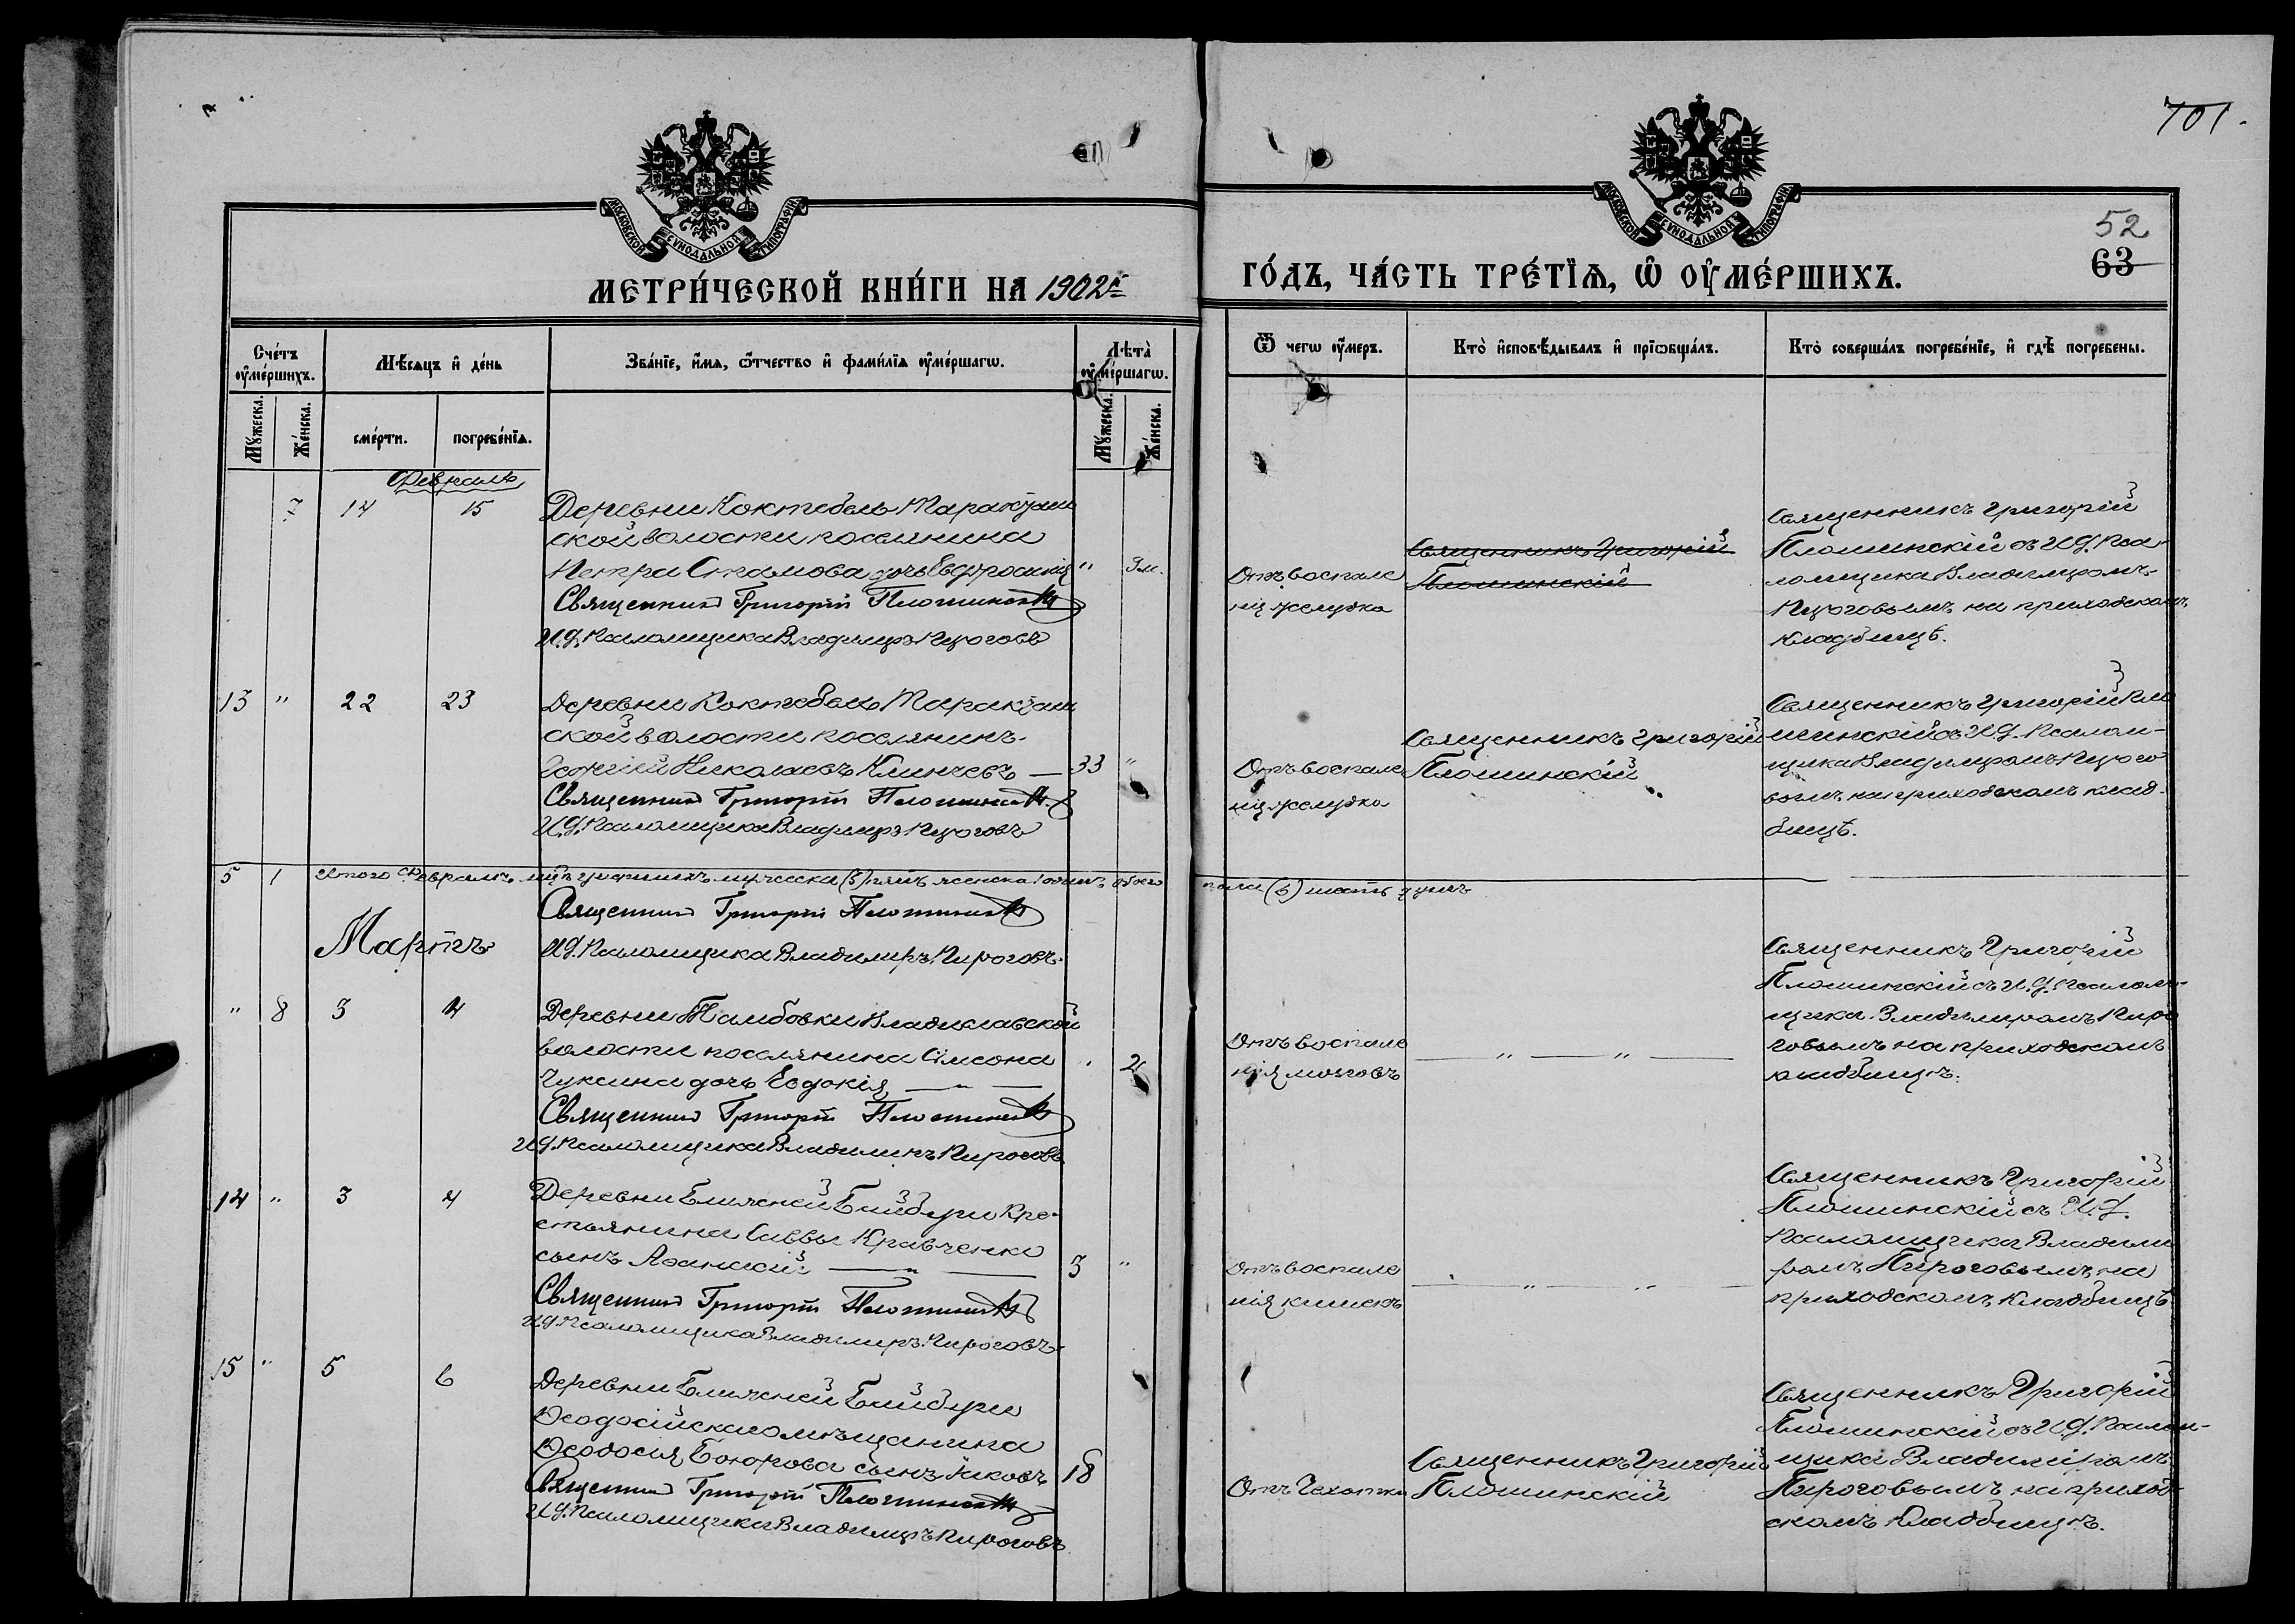 701.
МОСКОВСКОЙ СУНОДАЛЬНОЙ ТИПОГРАФІИ
МОСКОВСКОЙ СУНОДАЛЬНОЙ ТИПОГРАФІИ
52
63
МЕТРИ́ЧЕСКОЙ КНИ́ГИ НА 1902й
ГО́ДЪ, ЧА́СТЬ ТРЕ́ТІѦ, Ѿ ОУ҆МЕ́РШИХЪ.
Сче́тъ оу҆ме́ршихъ.
Мѣ́сяцъ и҆ де́нь
Зва́нїе, и҆́мѧ, ѻ҆́тчество и҆ фами́лїѧ оу҆ме́ршагѡ.
Лѣта̀ оу҆ме́ршагѡ.
Ѿ чегѡ оу҆́меръ.
Кто̀ и҆сповѣ́дывалъ и҆ прїѡбща́лъ.
Кто̀ соверша́лъ погребе́нїе, и҆ гдѣ̀ погребены.
Мꙋ́жеска.
Же́нска.
сме́рти.
погребе́нїѧ.
Мꙋ́жеска.
Же́нска.
Февраль
7 14 15
Деревни Коктебель Таракташ
ской волости поселянина
Петра Стамова дочь Евфросинія " 3 м.
Священникъ Григорій Плошинскій
И.д. Псаломщика Владимиръ Пироговъ
Отъ воспале
нія желудка
Священникъ Григорій
Плошинскій
Священникъ Григорій
Плошинскій съ И.д. Пса-
ломщика Владимиромъ
Пироговымъ на приходскомъ
кладбищѣ.
13 " 22 23
Деревни Коктебель Таракташ
ской волости поселянинъ
Георгій Николаевъ Клинчевъ — 33 "
Священникъ Григорій Плошинскій
И.д. Псаломщика Владимиръ Пироговъ
Отъ воспале
нія желудка
Священникъ Григорій
Плошинскій
Священникъ Григорій Пло
шинскій съ И.д. Псалом-
щика Владимиромъ Пирого
вымъ на приходскомъ клад-
бищѣ.
5 1 Итого въ Февралѣ м-цѣ умершихъ мужеска (5) пять женска 1 одинъ обоего
пола (6) шесть душъ
Священникъ Григорій Плошинскій
И.д. Псаломщика Владимиръ Пироговъ.
Мартъ
" 8 3 4
Деревни Тамбовки Владиславской
волости поселянина Симеона
Чуксина дочь Евдокія — " — " 2
Священникъ Григорій Плошинскій
И.д. Псаломщика Владимиръ Пироговъ
Отъ воспале
нія мозговъ
— " — " —
Священникъ Григорій
Плошинскій съ И.д. Псалом-
щика Владимиромъ Пиро
говымъ на приходскомъ
кладбищѣ.
14 " 3 4
Деревни Ближней Байбуги Кре-
стьянина Саввы Кравченко
сынъ Афанасій — " — 3 "
Священникъ Григорій Плошинскій
И.д. Псаломщика Владимиръ Пироговъ
Отъ воспале
нія кишекъ
— " — " —
Священникъ Григорій
Плошинскій съ И.д.
Псаломщика Владими
ромъ Пироговымъ на
приходскомъ кладбищѣ.
15 " 5 6
Деревни Ближней Байбуги
Ѳеодосійскаго мѣщанина
Ѳеодосія сынъ Яковъ 18
Священникъ Григорій Плошинскій
И.д. Псаломщика Владимиръ Пироговъ
Отъ Чахотки
Священникъ Григорій
Плошинскій
Священникъ Григорій
Плошинскій съ И.д. Псалом-
щика Владиміромъ
Пироговымъ на приход-
скомъ кладбищѣ.